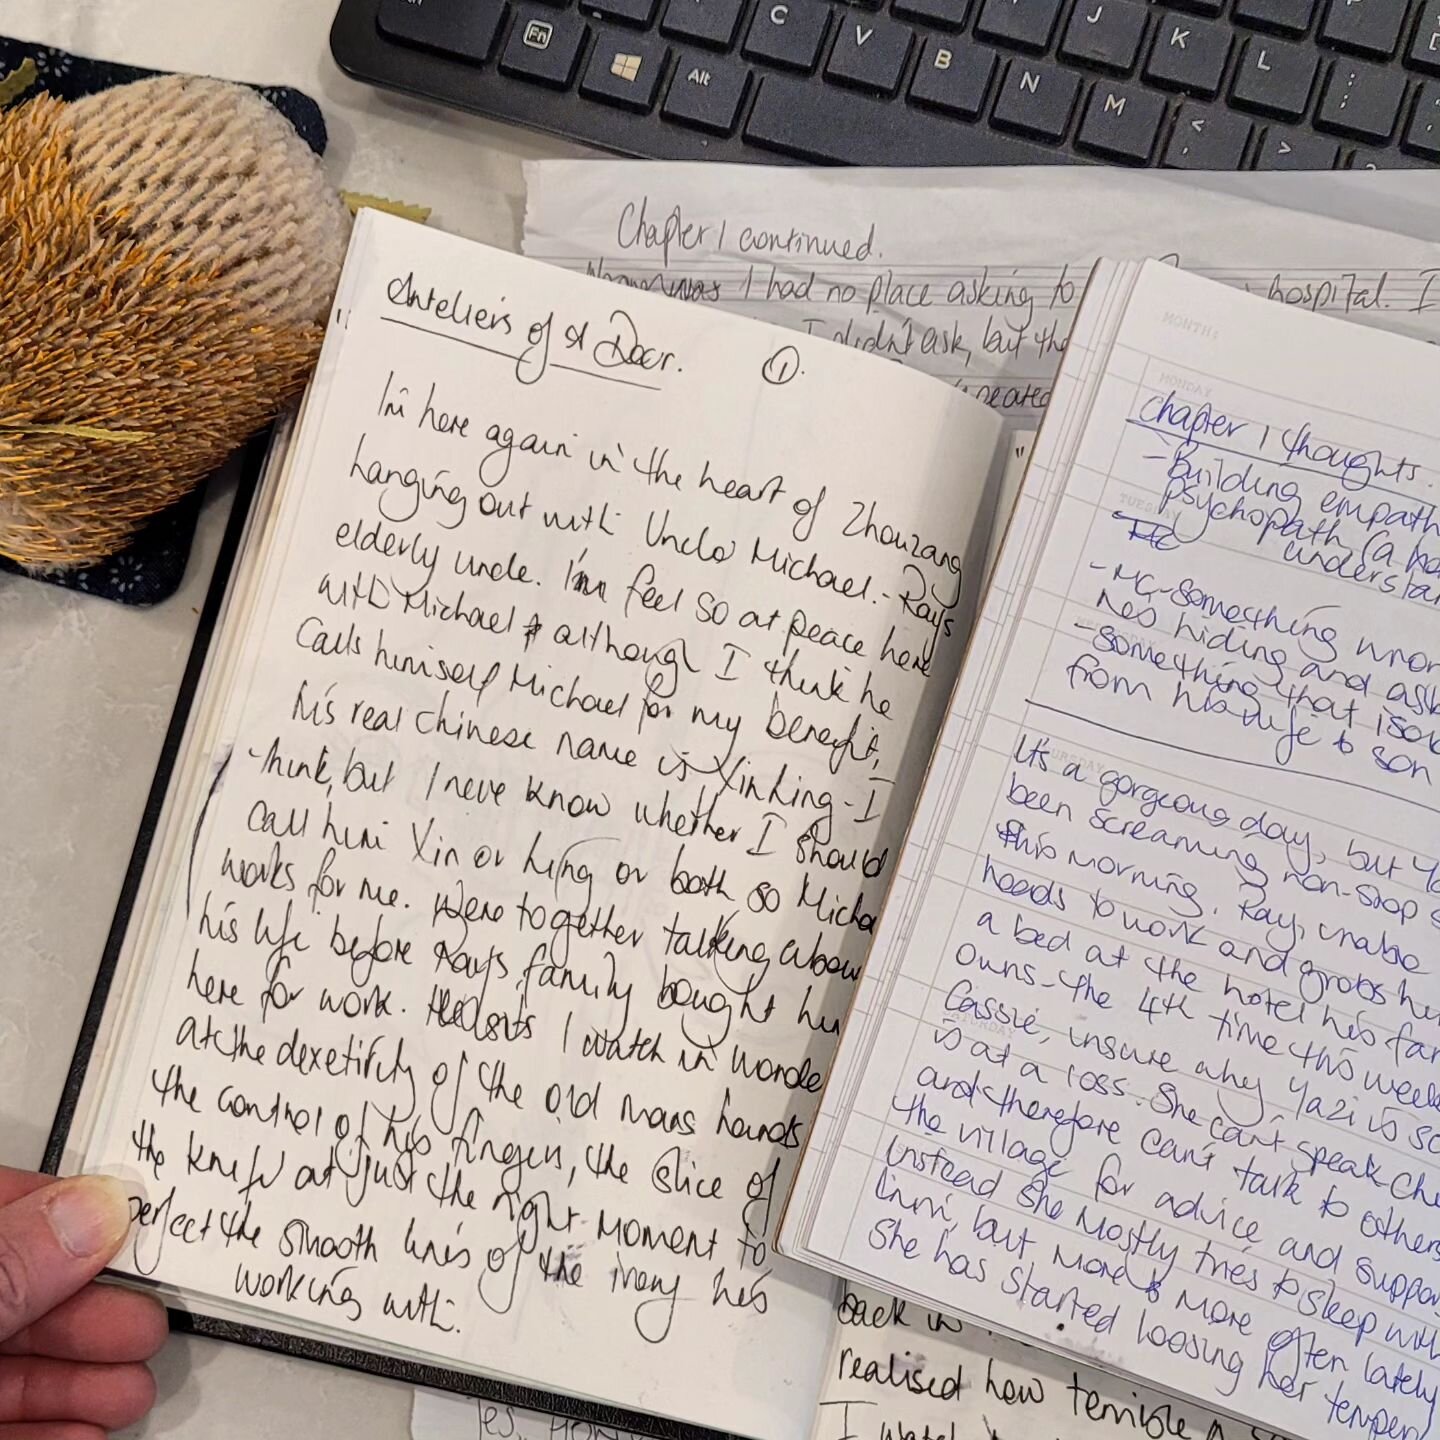 Fn
Alt
C
V
B
N
M
J
K
L
P
<
,
>
Chapter 1 continued.
I had no place asking to
hospital. I
I didn't ask, but the
Anteliers of st Door. ①.
I'm here again in the heart of Zhouzang
hanging out with Uncle Michael. - Rays
elderly uncle. I feel so at peace here
with Michael although I think he
calls himself Michael for my benefit,
his real chinese name is Xinking - I
think, but I never know whether I should
call him Xin or king or both so Micha
works for me. Were together talking abou
his life before Rays family bought him
here for work. I watch in wonde
at the dexetirity of the old mans hands
the control of his fingers, the slice of
the knife at just the right moment to
perfect the smooth lines of the ivory he's
working with.
MONTH:
MONDAY
Chapter 1 thoughts.
- Building empath
psychopath (a
understan
TUESDAY
- MC - Something wron
he's hiding and ask
- something that isol
from his wife & son
It's a gorgeous day, but Ya
been screaming non-stop s
this morning. Ray, unable
needs to work and grabs he
a bed at the hotel his fam
owns - the 4th time this week
Cassie, unsure why Yazi is so
is at a loss. She can't speak Chi
and therefore can't talk to others
the village for advice and suppor
instead she mostly tries to sleep with
him, but more & more often lately
She has started loosing her temper
back in
realised how terrible
I
Yes,